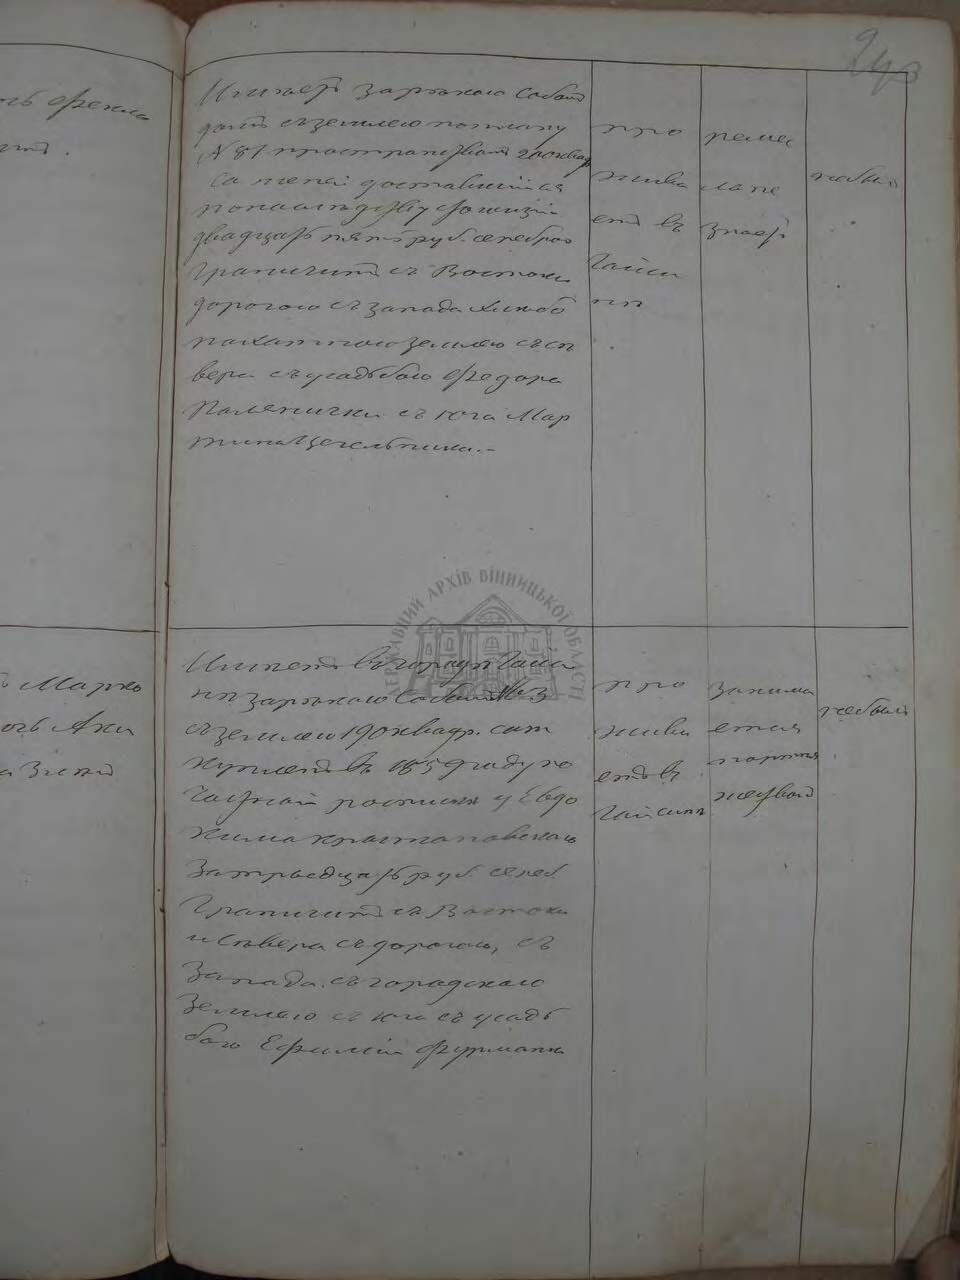 243
Имѣетъ зарѣкою Собомъ
домъ съ землею по плану
№ 81 пространствомъ 200 квад
саженей доставшійся
по наслѣдству
двадцать пять руб. серебро
Граничитъ съ Востока
дорогою съ запада хлѣбо
пахатною землею съ сѣ
вера съ усадьбою Федора
Паленички съ юга Мар
тина Цегельника.-
про
жива
етъ въ
Гайси
нѣ
ремес
ла не
знаетъ
небылъ
Имѣетъ въ городѣ Гайси
нѣ зарѣкою Собомъ № 3
съ землею 190 квадр. саж
купленъ въ 1859 году по
частной росписки у Евдо
кима
за тридцать руб. сереб.
Граничитъ съ Востока
и Сѣвера съ дорогою, съ
Запада съ городскою
Землею съ юга съ усадь
бою Ефимія Фурмана
про
жива
етъ въ
Гайсинѣ
занима
ется
портня
жествомъ
небылъ
Фекла
Марко
очь Аки
а Зинов
ДЕРЖАВНИЙ АРХІВ ВІННИЦЬКОЇ ОБЛАСТІ